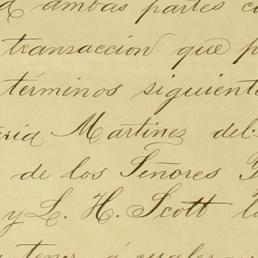 ambas partes
transaccion que
términos siguient
Martinez del
de los Señores
y L. H. Scott